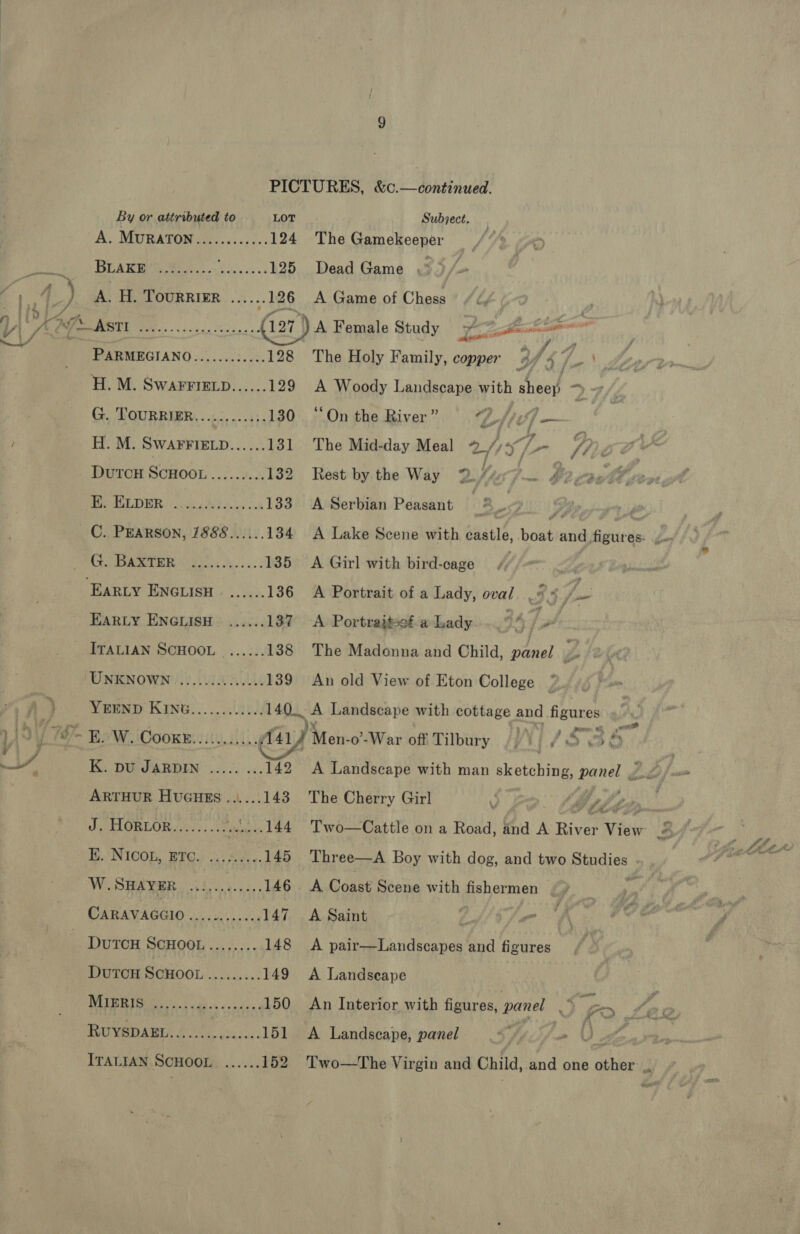 9
PICTURES, &c.—continued.
By or attributed to LOT Subject.
A. MURATON............124 The Gamekeeper
BLAKE ...................125 Dead Game
A. H. TOURRIER ......126 A Game of Chess
ASTI ........................127 A Female Study
PARMEGIANO............128 The Holy Family, copper
H. M. SWAFFIELD......129 A Woody Landscape with sheep
G. TOURRIER............130 “On the River”
H. M. SWAFFIELD......131 The Mid-day Meal
DUTCH SCHOOL.........132 Rest by the Way
E. ELDER ...............133 A Serbian Peasant
C. PEARSON, 1888......134 A Lake Scene with castle, boat and figures.
G. BAXTER ............135 A Girl with bird-cage
EARLY ENGLISH ......136 A Portrait of a Lady, oval
EARLY ENGLISH ......137 A Portrait of a Lady
ITALIAN SCHOOL ......138 The Madonna and Child, panel
UNKNOWN ...............139 An old View of Eton College
YEEND KING............140 A Landscape with cottage and figures
E. W. COOKE............141 Men-o’-War off Tilbury 1836
K. DU JARDIN ..... ...142 A Landscape with man sketching, panel
ARTHUR HUGHES ......143 The Cherry Girl
J. HORLOR...............144 Two—Cattle on a Road, and A River View
E. NICOL, ETC. .........145 Three—A Boy with dog, and two Studies
W. SHAYER ............146 A Coast Scene with fishermen
CARAVAGGIO............147 A Saint
DUTCH SCHOOL........148 A pair—Landscapes and figures
DUTCH SCHOOL.........149 A Landscape
MIERIS ..................150 An Interior with figures, panel
RUYSDAEL...............151 A Landscape, panel
ITALIAN SCHOOL ......152 Two—The Virgin and Child, and one other